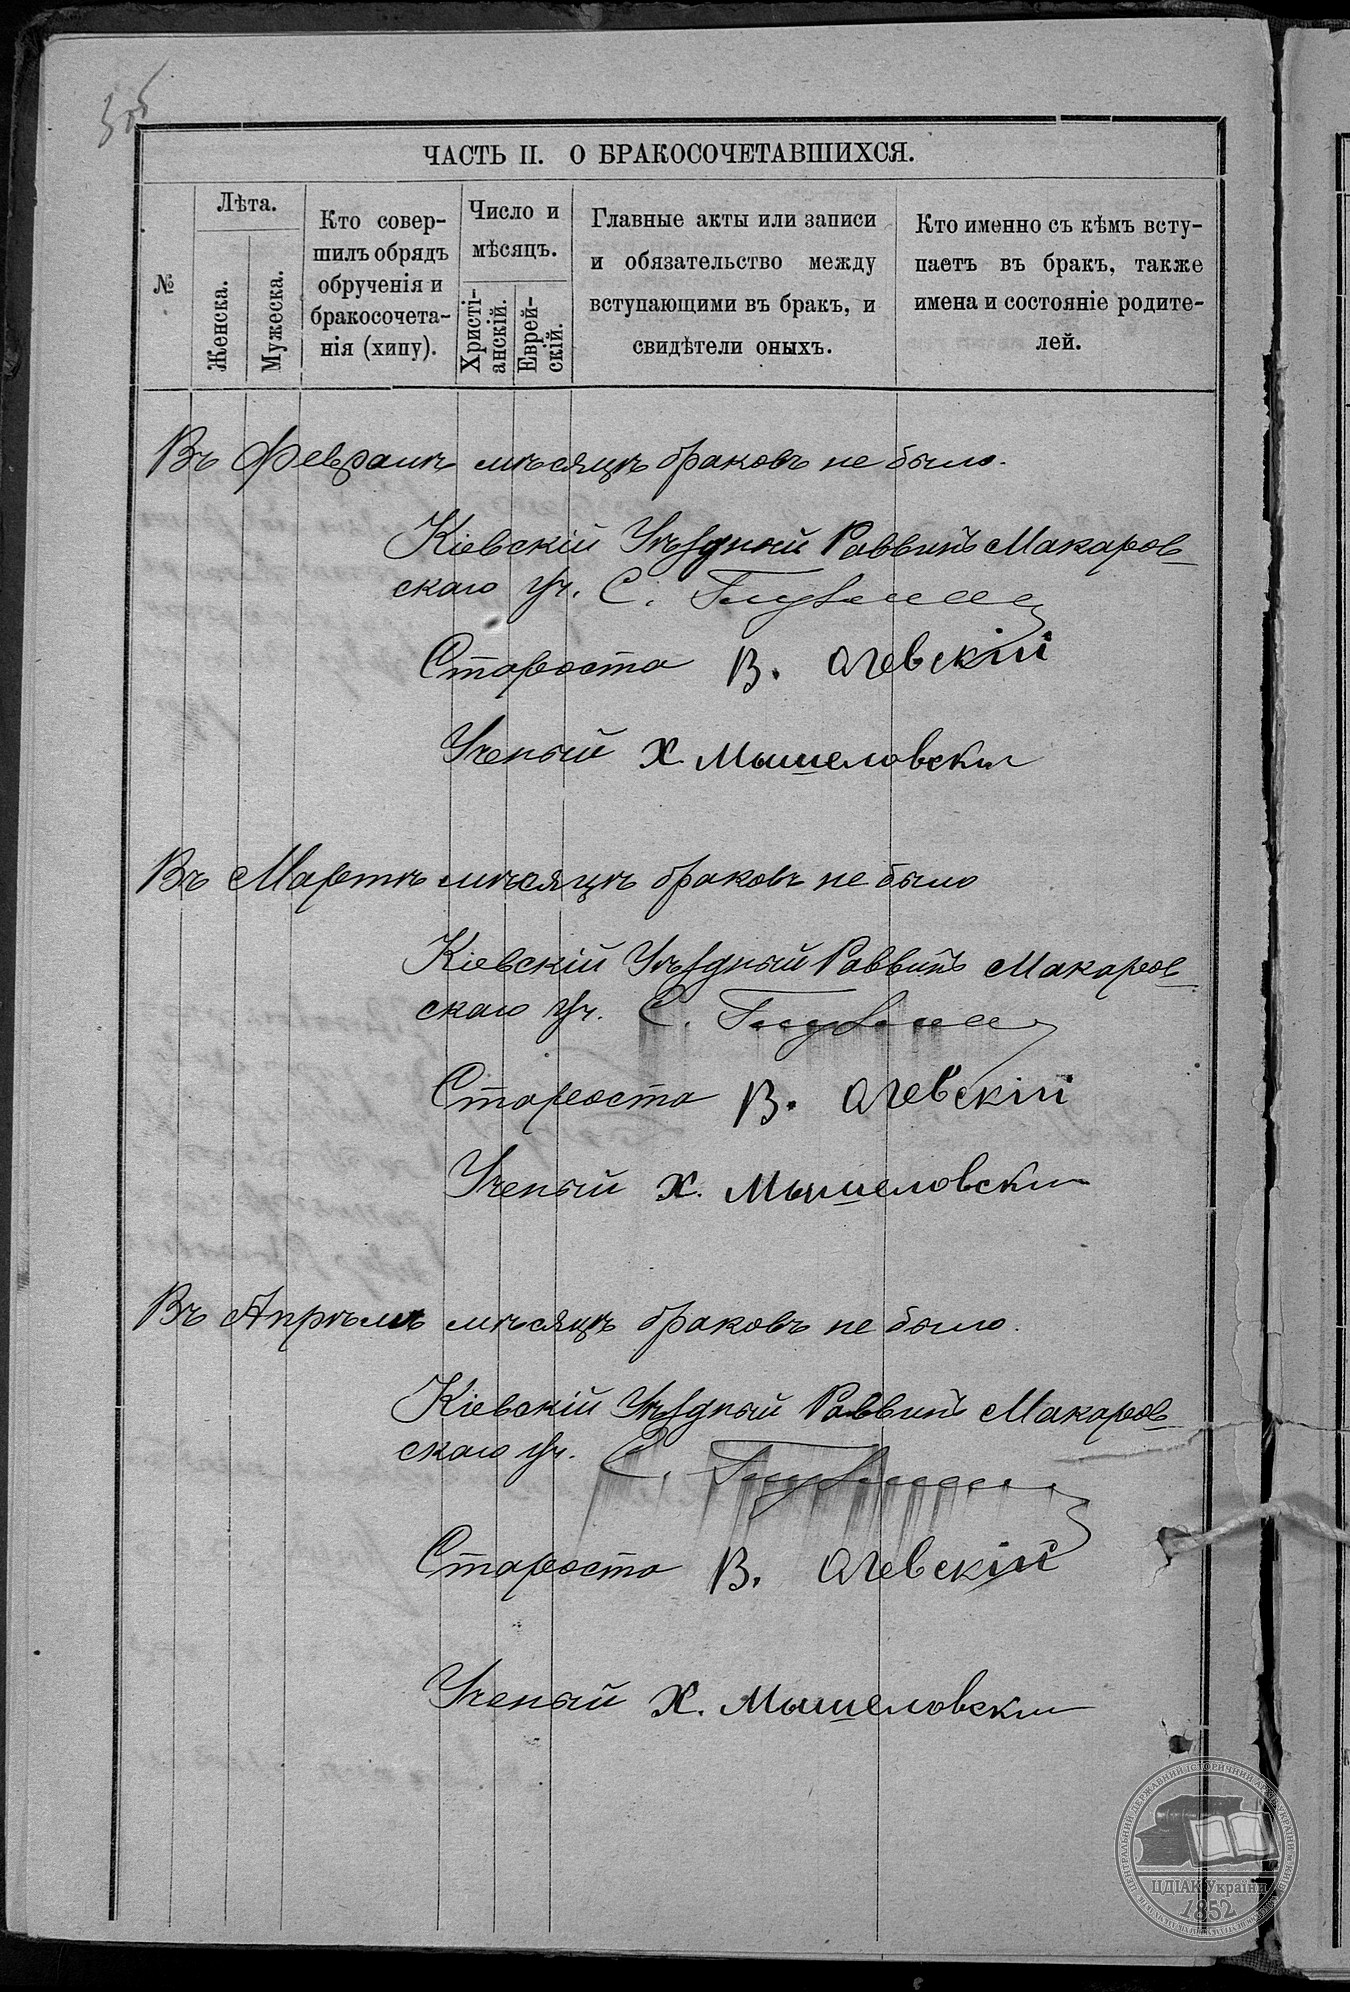 ЧАСТЬ II. О БРАКОСОЧЕТАВШИХСЯ.
№
Лѣта.
Женска.
Мужеска.
Кто совер-
шилъ обрядъ
обрученія и
бракосочета-
нія (хипу).
Число и
мѣсяцъ.
Христі-
анскій.
Еврей-
скій.
Главные акты или записи
и обязательство между
вступающими въ бракъ, и
свидѣтели оныхъ.
Кто именно съ кѣмъ всту-
паетъ въ бракъ, также
имена и состояніе родите-
лей.
Въ Февралѣ мѣсяцѣ браковъ не было.
Кіевскій Уѣздный Раввинъ Макаров-
скаго уч. С.
Староста В. Агевскій
Ученый Х. Мышеловски
Въ Мартѣ мѣсяцѣ браковъ не было
Кіевскій Уѣздный Раввинъ Макаров-
скаго уч. С.
Староста В. Агевскій
Ученый Х. Мышеловски
Въ Апрѣлѣ мѣсяцѣ браковъ не было.
Кіевскій Уѣздный Раввинъ Макаров-
скаго уч. С.
Староста В. Агевскій
Ученый Х. Мышеловски
ЦДІАК України
1852